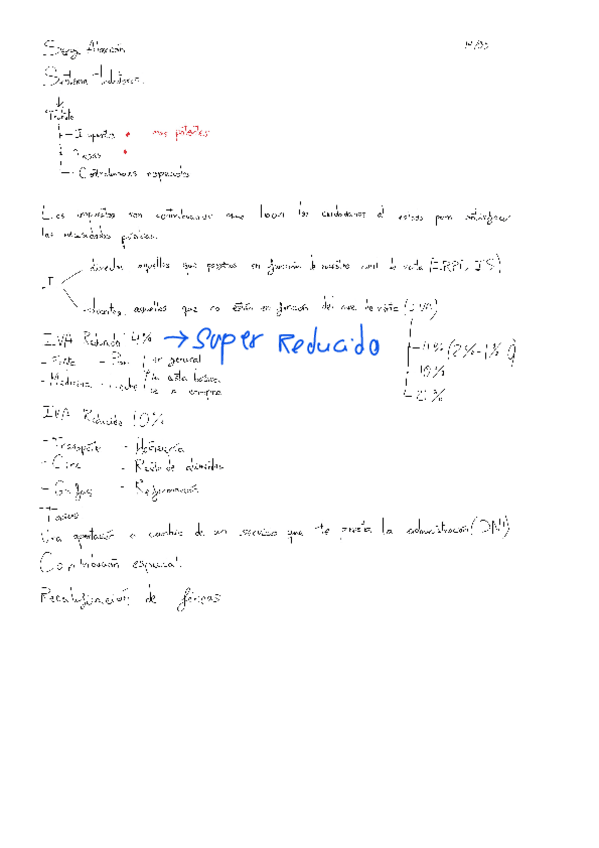 Sistema
- Impuestos • mas potentes
- Tasas •
- Contribuciones especiales
Los impuestos son contribuciones que hacen los ciudadanos al estado para satisfacer
las necesidades públicas.
directos aquellos que pagamos en función de nuestro nivel de renta (IRPF, IS)
I
indirectos, aquellos que no están en función del nivel de renta (IVA)
IVA Reducido 4% → Super Reducido
- Pan en general
- Medicina - Leche
10%
21%
IVA Reducido 10%
- Transporte - Hostelería
- Cine - Resto de alimentos
- Gafas - Reformas
Tasas
Una aportación a cambio de un servicio que te presta la administración (DNI)
Contribución especial.
de fincas